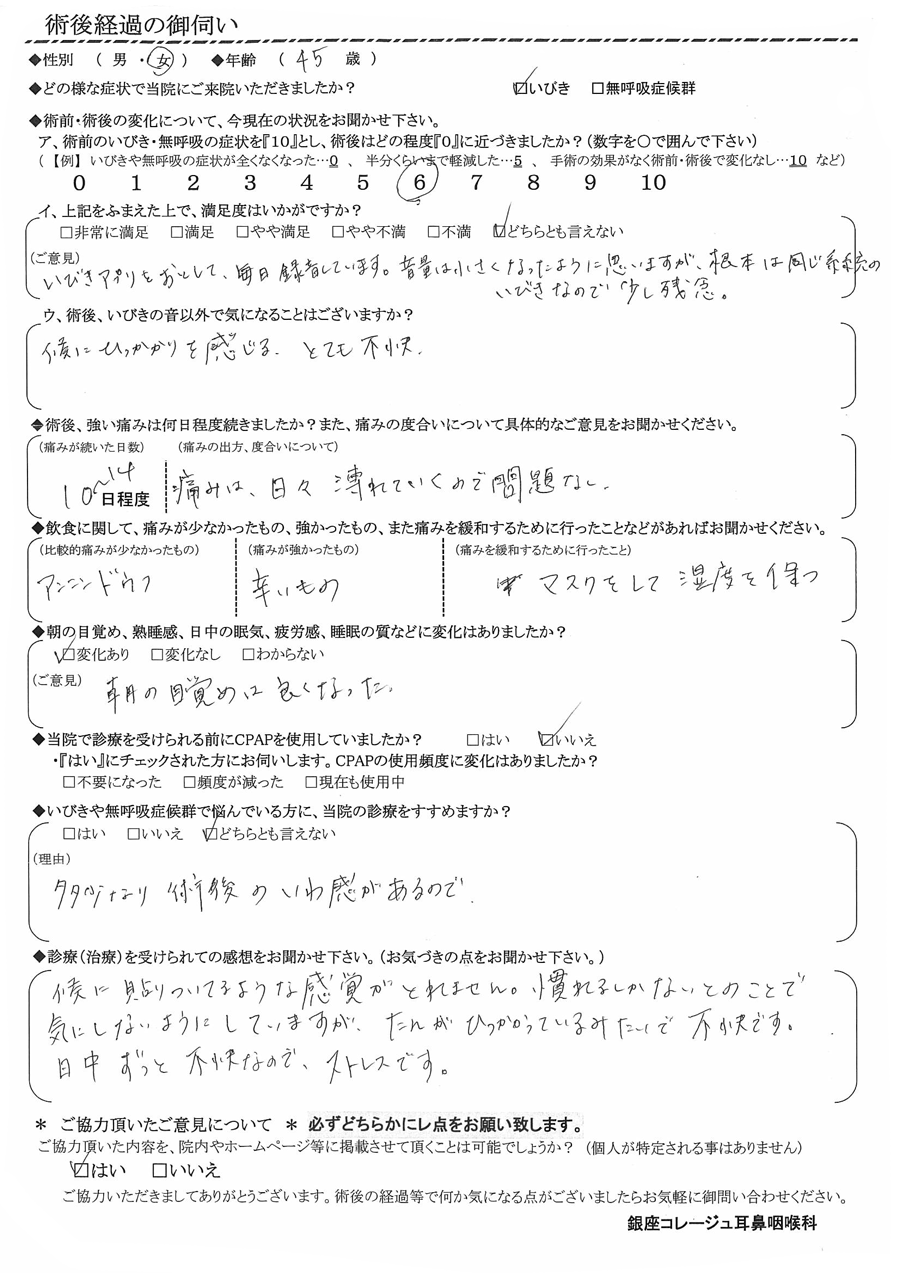 術後経過の御伺い
◆性別 ( 男 ・ 女 ) ◆年齢 ( 45 歳 )
◆どの様な症状で当院にご来院いただきましたか? ☑いびき □無呼吸症候群
◆術前・術後の変化について、今現在の状況をお聞かせ下さい。
ア、術前のいびき・無呼吸の症状を『10』とし、術後はどの程度『0』に近づきましたか?(数字を○で囲んで下さい)
(【例】いびきや無呼吸の症状が全くなくなった…0 、 半分くらいまで軽減した…5 、 手術の効果がなく術前・術後で変化なし…10 など)
0 1 2 3 4 5 6 7 8 9 10
イ、上記をふまえた上で、満足度はいかがですか?
□非常に満足 □満足 □やや満足 □やや不満 □不満 ☑どちらとも言えない
(ご意見)
いびきアプリをおとして、毎日録音しています。音量は小さくなったように思いますが、根本は同じ系統の
いびきなので少し残念。
ウ、術後、いびきの音以外で気になることはございますか?
候にひっかかりを感じる。とても不快。
◆術後、強い痛みは何日程度続きましたか?また、痛みの度合いについて具体的なご意見をお聞かせください。
(痛みが続いた日数) (痛みの出方、度合いについて)
10~14日程度 痛みは、日々薄れていくので問題なし。
◆飲食に関して、痛みが少なかったもの、強かったもの、また痛みを緩和するために行ったことなどがあればお聞かせください。
(比較的痛みが少なかったもの) (痛みが強かったもの) (痛みを緩和するために行ったこと)
アンニンドウフ 辛いもの マスクをして湿度を保つ
◆朝の目覚め、熟睡感、日中の眠気、疲労感、睡眠の質などに変化はありましたか?
☑変化あり □変化なし □わからない
(ご意見) 朝の目覚めは良くなった。
◆当院で診療を受けられる前にCPAPを使用していましたか? □はい ☑いいえ
・『はい』にチェックされた方にお伺いします。CPAPの使用頻度に変化はありましたか?
□不要になった □頻度が減った □現在も使用中
◆いびきや無呼吸症候群で悩んでいる方に、当院の診療をすすめますか?
□はい □いいえ ☑どちらとも言えない
(理由)
術後のいわ感があるので。
◆診療(治療)を受けられての感想をお聞かせ下さい。(お気づきの点をお聞かせ下さい。)
候に貼りついてるような感覚がとれません。慣れるしかないとのことで
気にしないようにしていますが、たんがひっかかっているみたいで不快です。
日中ずっと不快なので、ストレスです。
* ご協力頂いたご意見について * 必ずどちらかにレ点をお願い致します。
ご協力頂いた内容を、院内やホームページ等に掲載させて頂くことは可能でしょうか? (個人が特定される事はありません)
☑はい □いいえ
ご協力いただきましてありがとうございます。術後の経過等で何か気になる点がございましたらお気軽に御問い合わせください。
銀座コレージュ耳鼻咽喉科